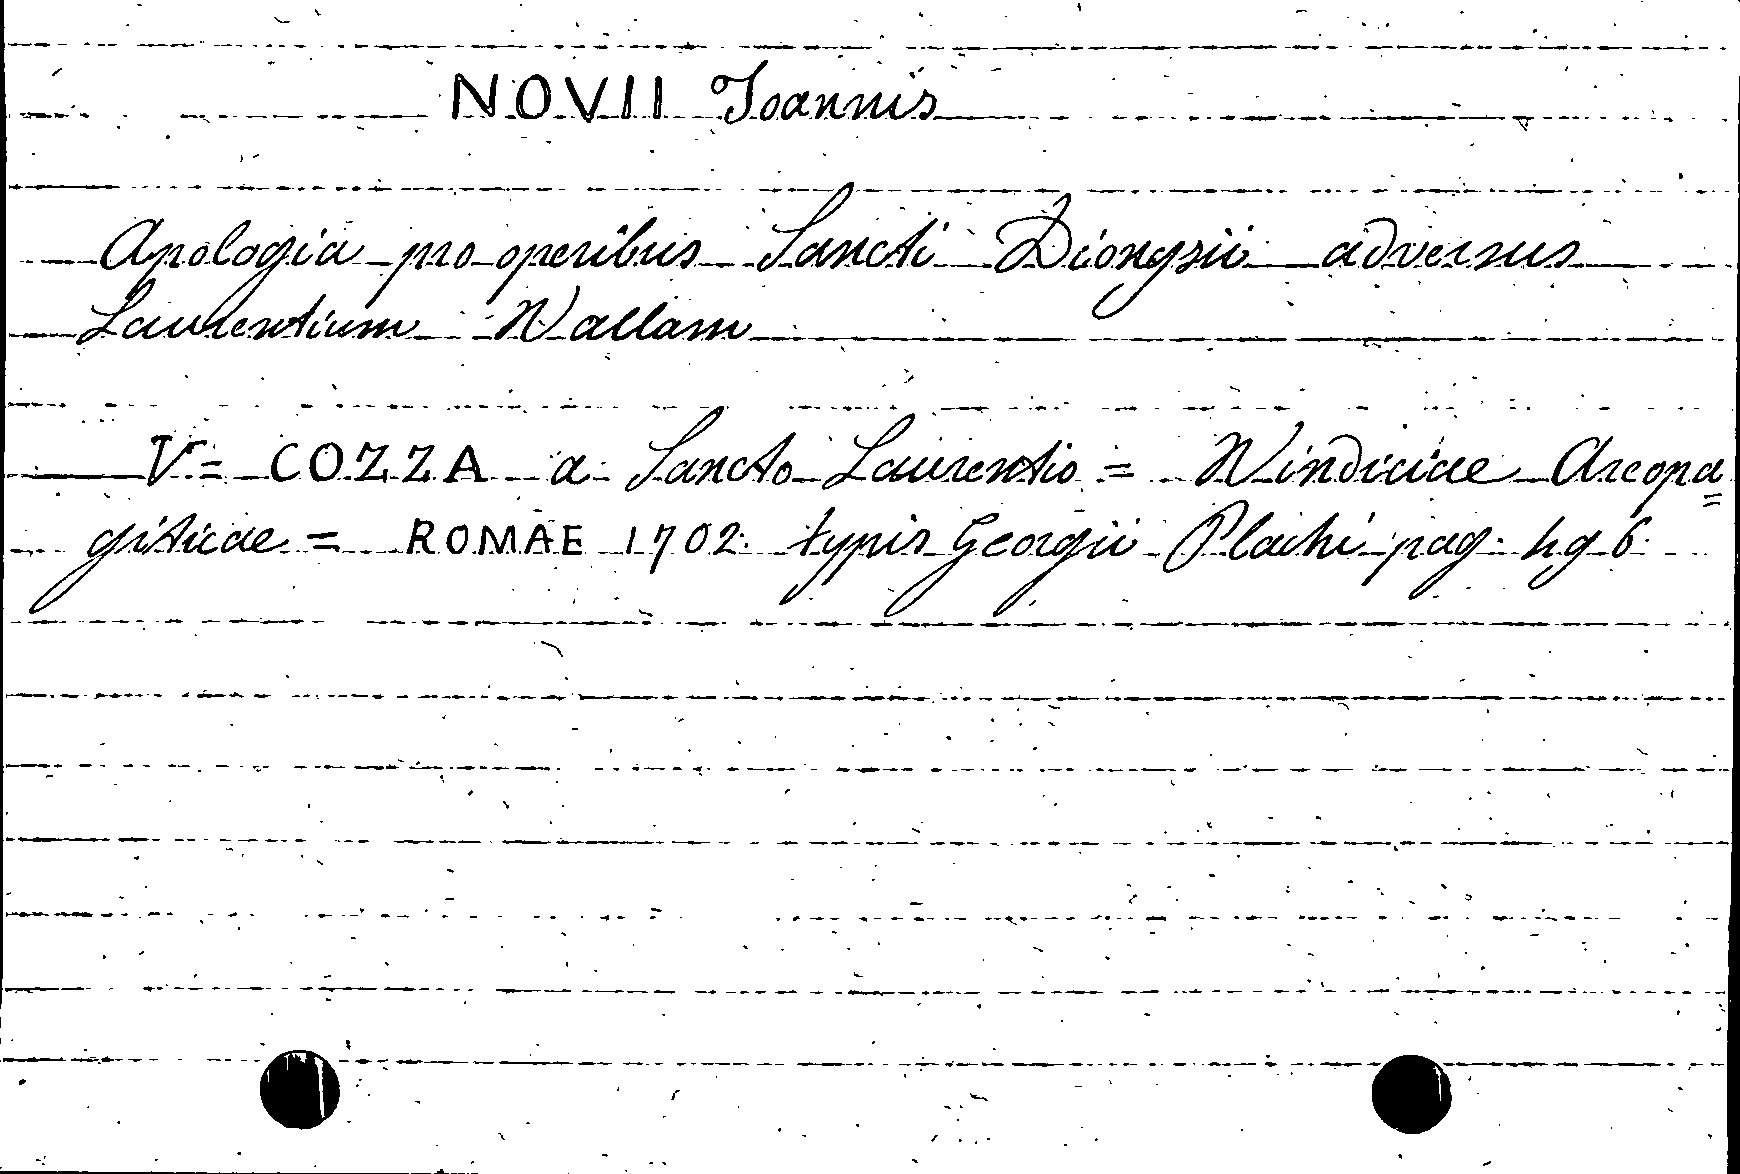 NOVII Joannis
Apologia pro operibus Sancti Dionysii adversus
Laurentium Wallam
V = COZZA a Sancto Laurentio = Windiciae Areopa=
giticae = ROMAE 1702. typis Georgii Plachi pag.